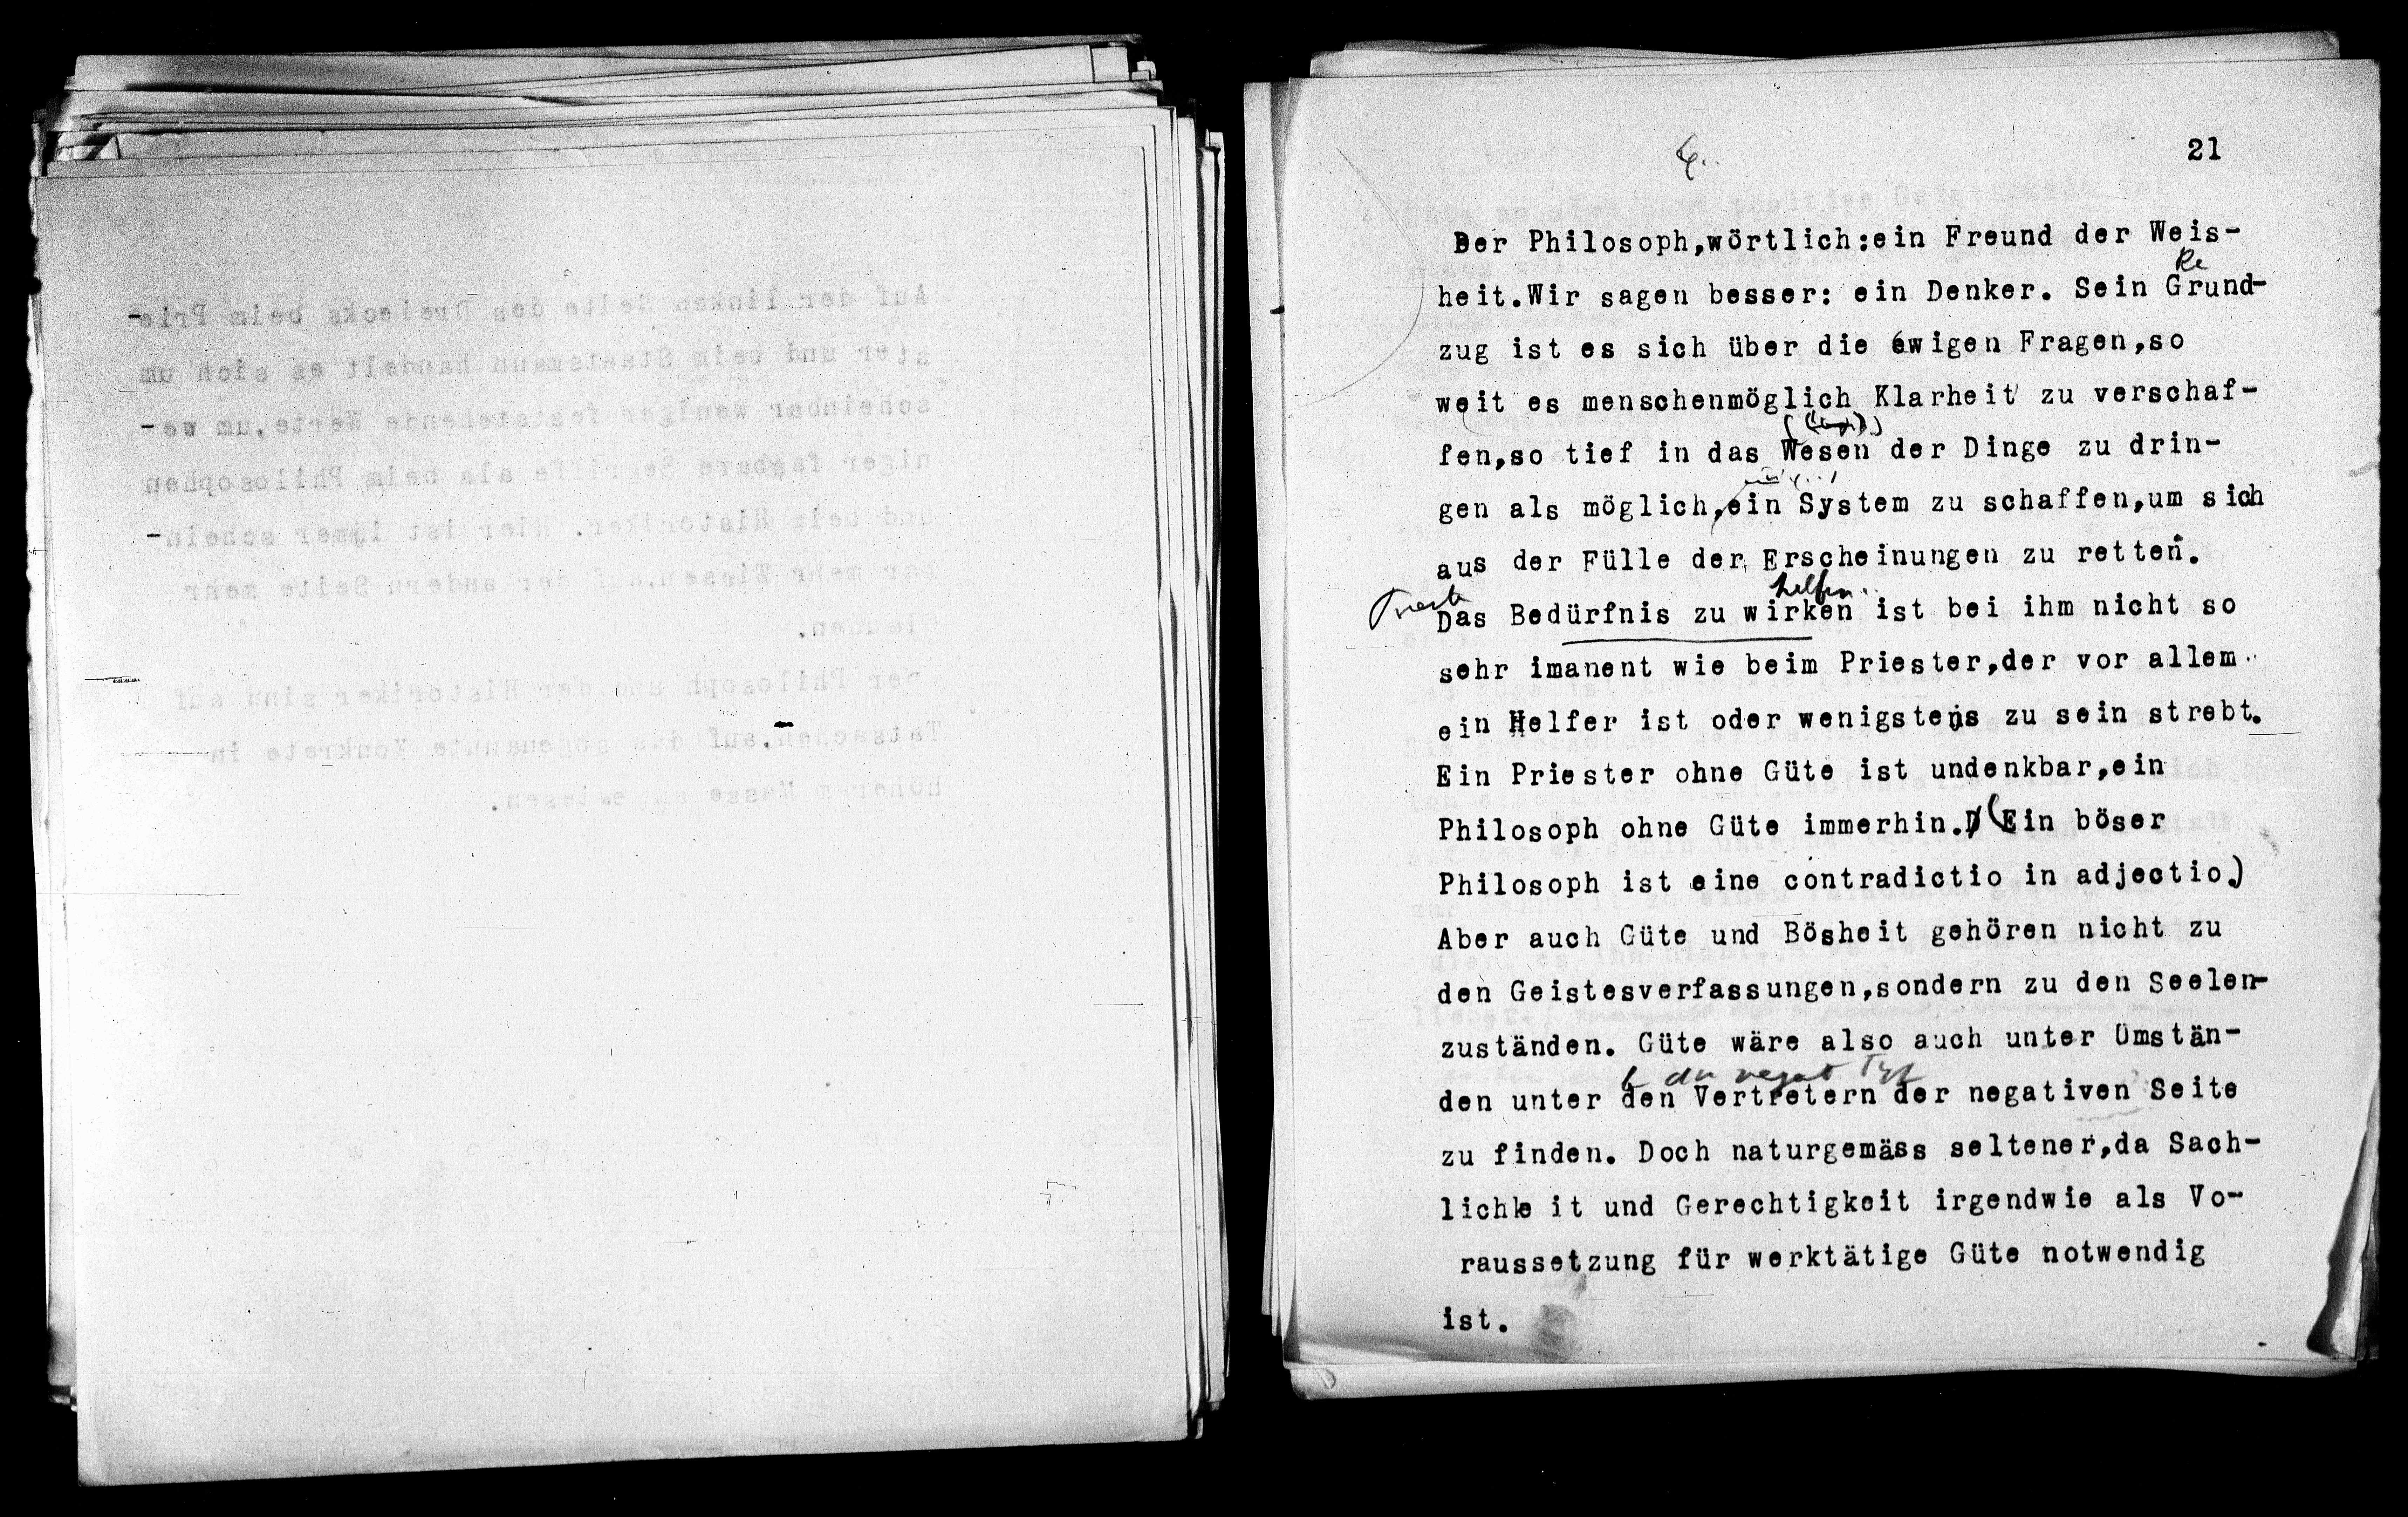 Auf der linken Seite des Dreiecks beim Prie-
ster und beim Staatsmann handelt es sich um
scheinbar weniger feststehende Werte,um we-
niger faßbare Begriffe als beim Philosophen
und beim Historiker. Hier ist immer schein-
bar mehr Wissen,auf der andern Seite mehr
Glauben.
Der Philosoph und der Historiker sind auf
Tatsachen,auf das sogenannte Konkrete in
höherem Masse angewiesen.
21
Der Philosoph,wörtlich:ein Freund der Weis-
heit.Wir sagen besser: ein Denker. Sein Grund-
zug ist es sich über die ewigen Fragen,so
weit es menschenmöglich Klarheit zu verschaf-
fen,so tief in das Wesen der Dinge zu drin-
gen als möglich,ein System zu schaffen,um sich
aus der Fülle der Erscheinungen zu retten.
helfen
Das Bedürfnis zu wirken ist bei ihm nicht so
sehr imanent wie beim Priester,der vor allem
ein Helfer ist oder wenigstens zu sein strebt.
Ein Priester ohne Güte ist undenkbar,ein
Philosoph ohne Güte immerhin.(Ein böser
Philosoph ist eine contradictio in adjectio)
Aber auch Güte und Bösheit gehören nicht zu
den Geistesverfassungen,sondern zu den Seelen-
zuständen. Güte wäre also auch unter Umstän-
den unter den Vertretern der negativen Seite
zu finden. Doch naturgemäss seltener,da Sach-
lichkeit und Gerechtigkeit irgendwie als Vo-
raussetzung für werktätige Güte notwendig
ist.